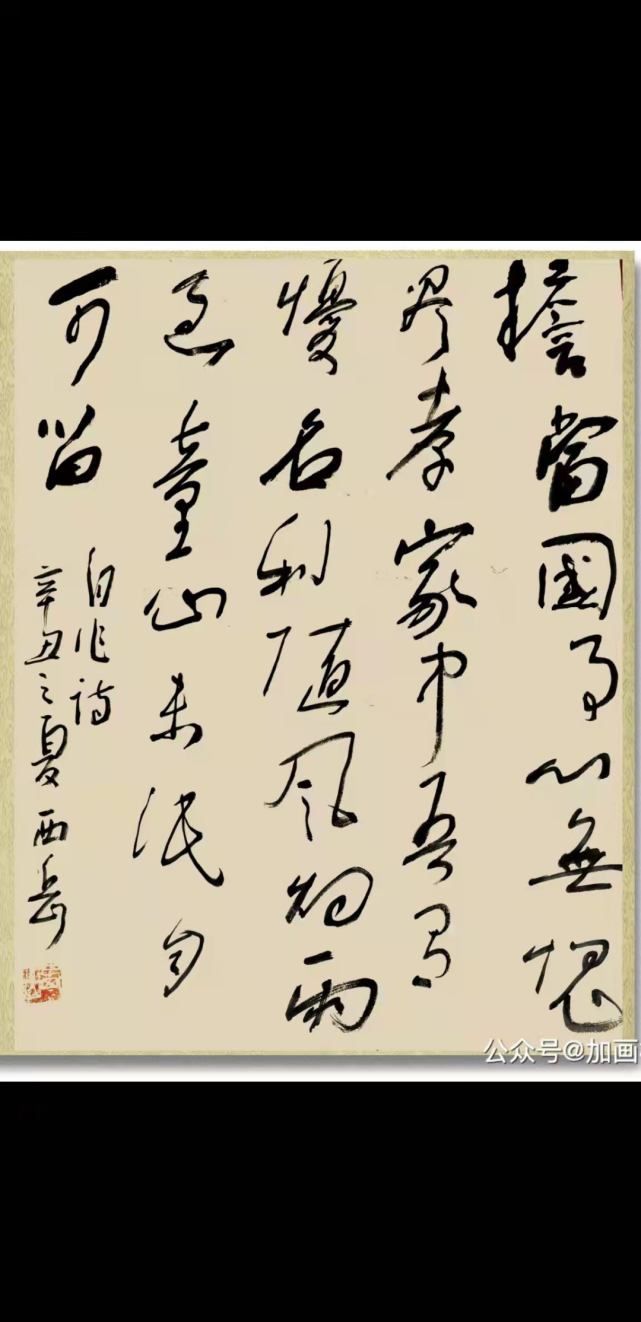 擔當國事心無愧
盡孝家中吾有
憂名利隨風煙雨
過童心未泯自
可留
自作詩
辛丑之夏西岳
公众号@加画